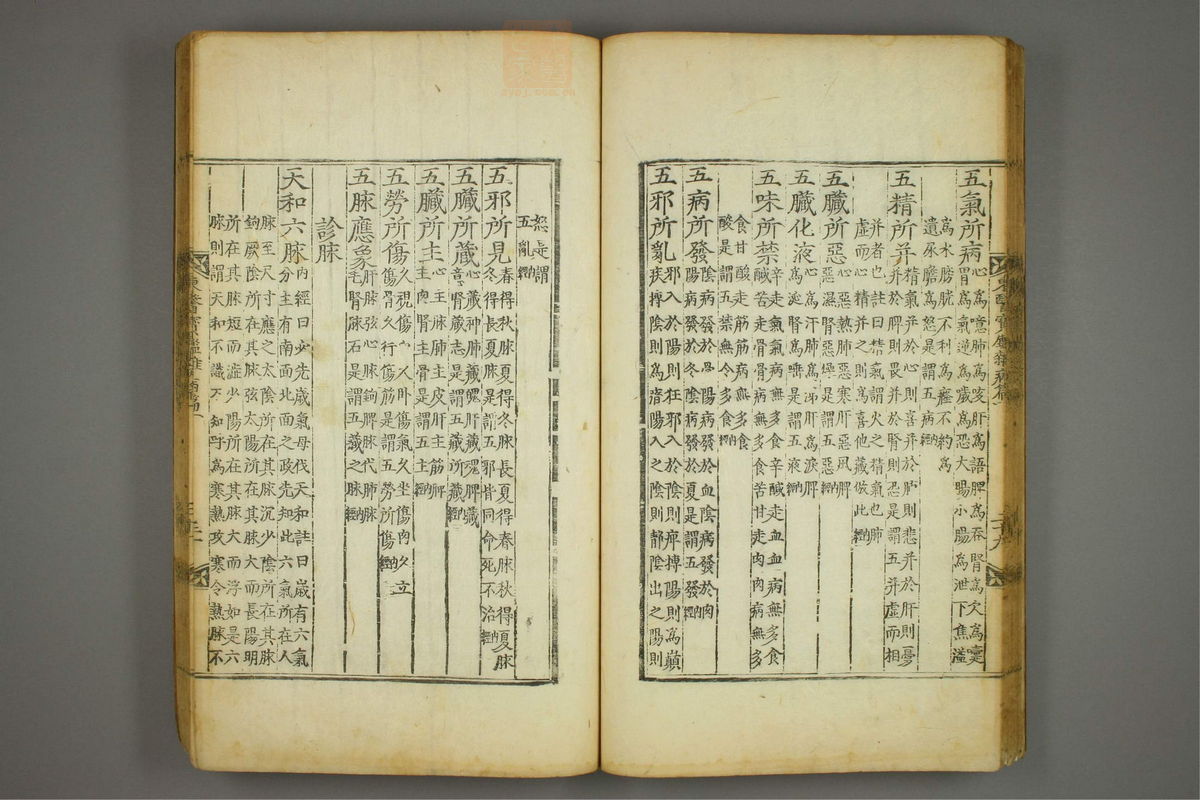 五氣所病 心爲噫肺爲咳肝爲語脾爲吞腎爲欠爲嚔
胃爲氣逆爲噦爲恐大腸小腸爲泄下焦溢
爲水膀胱不利爲癃不約爲
遺尿膽爲怒是謂五病內經
五精所并 精氣并於心則喜并於肺則悲并於肝則憂
并於脾則畏并於腎則恐是謂五并虛而相
并者也註曰精氣謂火之精氣也肺
虛而心精并之則爲喜他藏倣此內經
五臟所惡 心惡熱肺惡寒肝惡風脾
惡濕腎惡燥是謂五惡內經
五臟化液 心爲汗肺爲涕肝爲淚脾
爲涎腎爲唾是謂五液內經
五味所禁 辛走氣氣病無多食辛鹹走血血病無多食
鹹苦走骨骨病無多食苦甘走肉肉病無多
食甘酸走筋筋病無多食
酸是謂五禁無令多食內經
五病所發 陰病發於骨陽病發於血陰病發於肉
陽病發於冬陰病發於夏是謂五發內經
五邪所亂 邪入於陽則狂邪入於陰則痺搏陽則爲巓
疾搏陰則爲瘖陽入之陰則靜陰出之陽則
怒是謂
五亂內經
五邪所見 春得秋脉夏得冬脉長夏得春脉秋得夏脉
冬得長夏脉是謂五邪皆同命死不治內經
五臟所藏 心藏神肺藏魄肝藏魂脾藏
意腎藏志是謂五藏所藏內經
五臟所主 心主脉肺主皮肝主筋脾
主肉腎主骨是謂五主內經
五勞所傷 久視傷血久臥傷氣久坐傷肉久立
傷骨久行傷筋是謂五勞所傷內經
五脉應象 肝脉弦心脉鉤脾脉代肺脉
毛腎脉石是謂五藏之脉內經
診脉
天和六脉 內經曰必先歲氣母伐天和註曰歲有六氣
分主有南面北面之政先知此六氣所在人
脉至尺寸應之太陰所在其脉沉少陰所在其脉
鉤厥陰所在其脉弦太陽所在其脉大而長陽明
所在其脉短而濇少陽所在其脉大而浮如是六
脉則謂天和不識不知呼爲寒熱攻寒令熱脉不